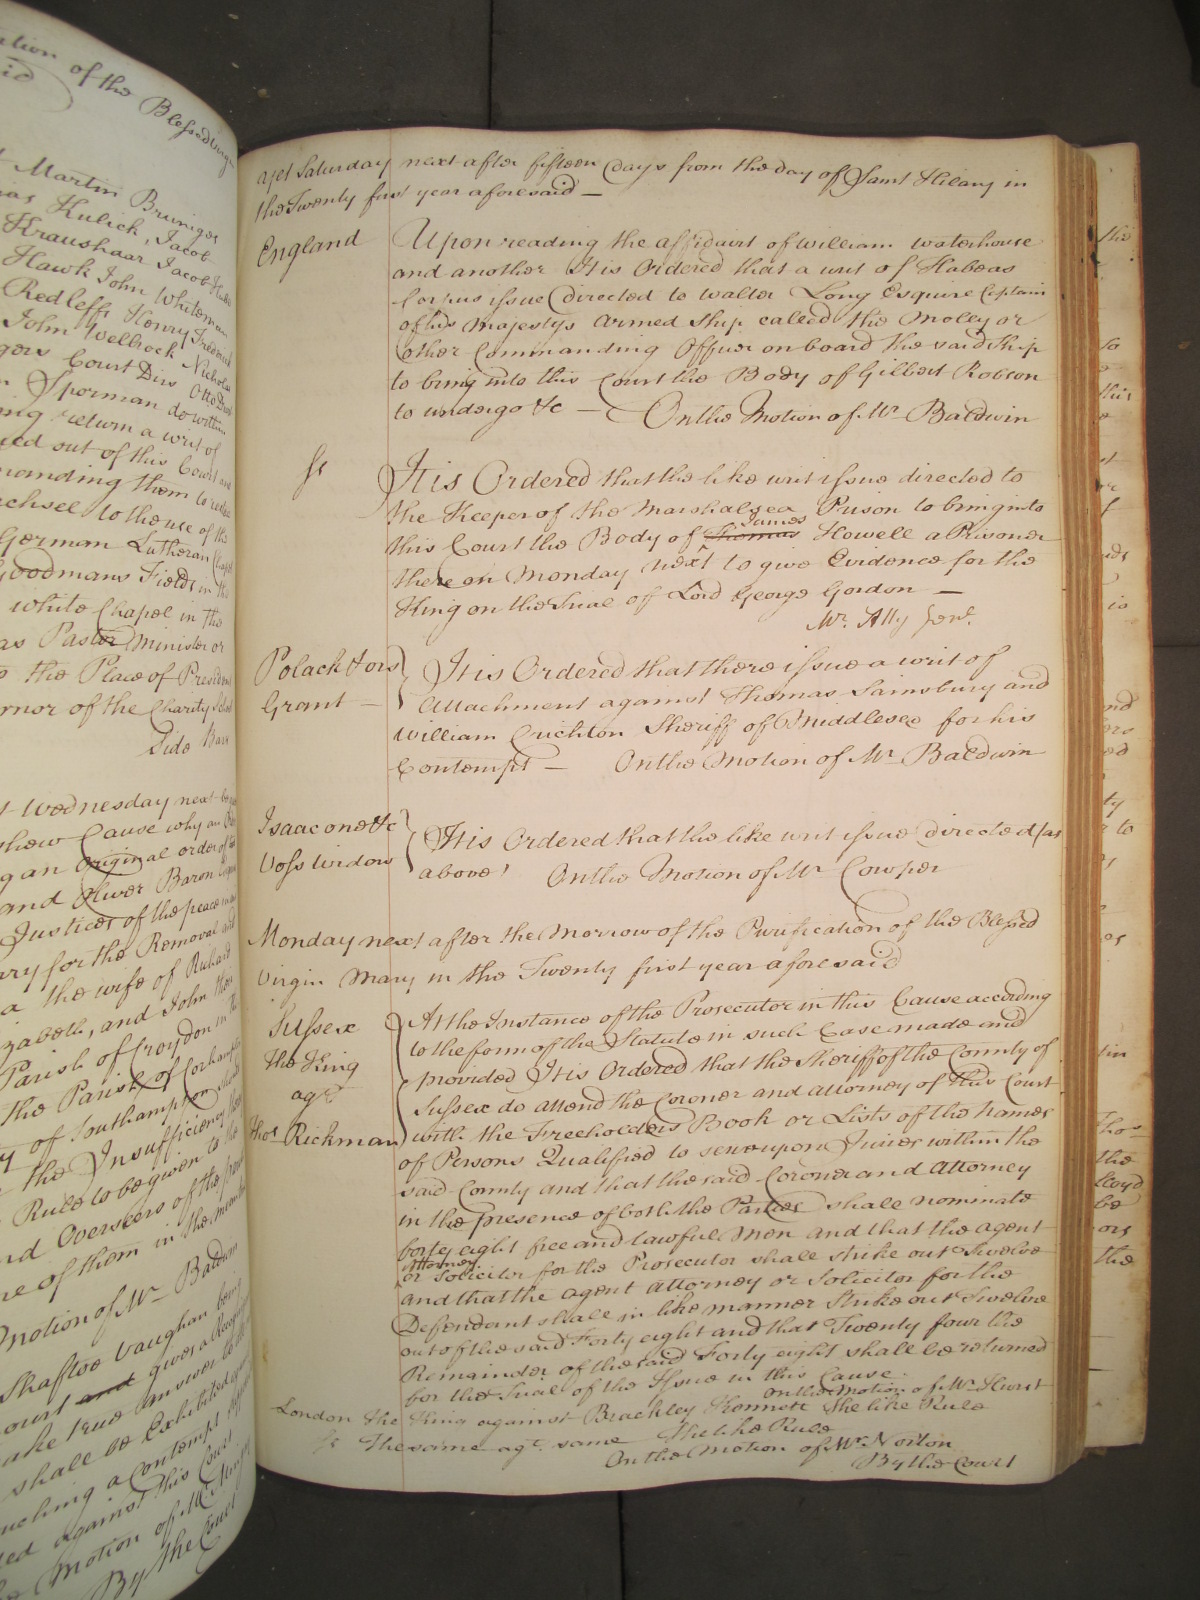 ation of the Blessed Virgin
id
Martin Bruniges
as Kulick, Jacob
Kraushaar Jacob
Hawk John Whiteman
Redleffs Henry Frederick
John Wellbrock Nicholas
gers Court Dirs Otto
Sporman do within
ing return a writ of
ued out of this Court and
manding them to
to the use of the
German Lutheran Chapel
Goodmans Fields in the
white Chapel in the
as Pastor Minister or
to the Place of President
rnor of the Charity School
Side Bar
t Wednesday next
shew Cause why an
g an Original order of
and Oliver Baron Esquire
Justices of the peace in and
ry for the Removal and
a the wife of Richard
zabeth, and John their
Parish of Croydon in the
the Parish of Corhampton
y of Southampton should
the Insufficiency
Rule to be given to the
nd Overseers of the poor
ne of them in the mean time
motion of Mr Baldwin
Shaftoe Vaughan being
ourt and gives a Recog
ake true answer to
shall be Exhibited
uching a Contempt
ed against this Court
Motion of Mr
By the Court
ayet Saturday next after fifteen days from the day of Saint Hilary in
the Twenty first year aforesaid —
England Upon reading the affidavit of William Waterhouse
and another It is Ordered that a writ of Habeas
Corpus issue directed to Walter Long Esquire Captain
of his Majestys Armed Ship called the Molly or
other Commanding Officer on board the said Ship
to bring into this Court the Body of Gilbert Robson
to undergo &c — On the Motion of Mr Baldwin
Ss It is Ordered that the like writ issue directed to
the Keeper of the Marshalsea Prison to bring into
James
this Court the Body of Thomas Howell a Prisoner
there on Monday next to give Evidence for the
King on the Trial of Lord George Gordon —
Mr. Atty Genl.
Polack & ors It is Ordered that there issue a writ of
Grant — Attachment against Thomas Sainsbury and
William Crichton Sheriff of Middlesex for his
Contempt — On the Motion of Mr Baldwin
Isaac one &c It is Ordered that the like writ issue directed (as
Voss Widow above) On the Motion of Mr Cowper
Monday next after the Morrow of the Purification of the Blessed
Virgin Mary in the Twenty first year aforesaid
Sussex At the Instance of the Prosecutor in this Cause according
to the form of the Statute in such Case made and
The King provided It is Ordered that the Sheriff of the County of
agt Sussex do attend the Coroner and Attorney of this Court
Thos Richman with the Freeholders Book or Lists of the Names
of Persons Qualified to serve upon Juries within the
said County and that the said Coroner and Attorney
in the presence of both the Parties shall nominate
forty eight free and lawful Men and that the agent
Attorney
or Solicitor for the Prosecutor shall strike out Twelve
and that the agent Attorney or Solicitor for the
Defendant shall in like manner Strike out Twelve
out of the said Forty eight and that Twenty four the
Remainder of the said Forty eight shall be returned
for the Trial of the Issue in this Cause.
On the Motion of Mr Hurst
London The King against Brackley Kennett The like Rule
Ss The same agt. same The like Rule
On the Motion of Mr Norton
By the Court
the
so
this
nd
ed
ty
to
tin
Thos
the
Lloyd
be
ors
the